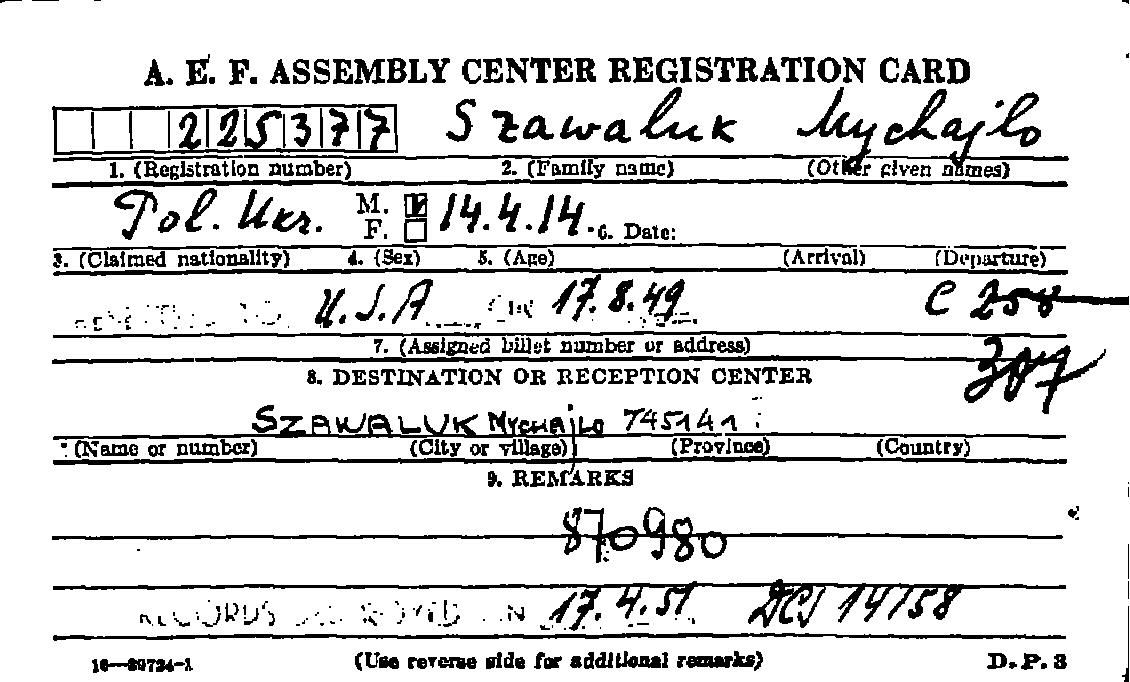 A. E. F. ASSEMBLY CENTER REGISTRATION CARD
225377 Szawaluk Mychajlo
1. (Registration number) 2. (Family name) (Other given names)
Pol. Ukr. M. F. 14.4.14. 6. Date:
3. (Claimed nationality) 4. (Sex) 5. (Age) (Arrival) (Departure)
U.S.A ON 17.8.49 C 258
7. (Assigned billet number or address)
307
8. DESTINATION OR RECEPTION CENTER
SZAWALUK Mychajlo 745141
(Name or number) (City or village) (Province) (Country)
9. REMARKS
870980
RECORDS IN 17.4.51 DCJ 14/58
16—39724-1 (Use reverse side for additional remarks) D.P. 3